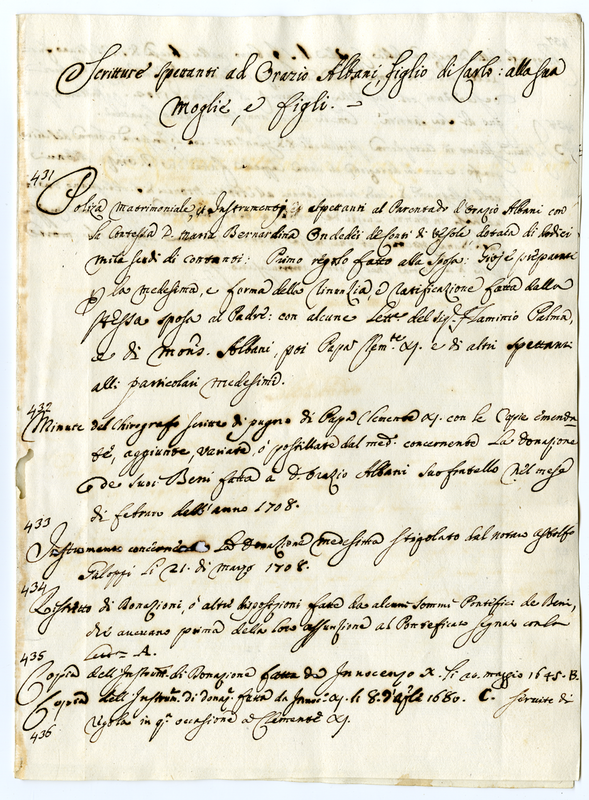 Scritture spettanti ad Orazio Albani, figlio di Carlo: alla sua
Moglie, e figli. -
431
Poliza Matrimoniale, et Instrumento spettanti al Parentado d'Orazio Albani con
la Contessa D. Maria Bernardina Ondedei de Conti di Vezole dotata di
mila scudi di contanti: Primo regolo fatto alla Sposa: Gioje
la medesima, e forma della Rinonzia, e Ratificazione fatta dalla
stessa sposa al Padre: con alcune lett.e del Sig.r Flaminio Palma,
e di Mons. Albani, poi Papa Clem.te XI. e di altri spettanti
alli particolari medesimi.
432
Minute del Chirografo scritto di pugno di Papa Clemente XI. con le Varie emenda-
te, aggiunte, variate, o postillate dal med.o concernente la Donazione
de suoi Beni fatta a D. Orazio Albani suo fratello nel mese
di febraro dell'anno 1708.
433
Instrumento concernente la Donazione medesima stipolato dal notaro Astolfo
Galoppi li 21. di marzo 1708.
434
Ristretto di Donazioni, o altre disposizioni fatte da alcuni Sommi Pontefici de Beni,
che aveano prima della loro assunzione al Pontificato segnat. con la
Lett.a A.
435
Copia dell'Instrom. di Donazione fatta da Innocenzo X. li 20. maggio 1645. B.
Copia dell'Instrom. di donaz. fatta da Innoc. XI. li 8. d'Aple 1680. C. servite di
regola in q.a occasione a Clemente XI.
436